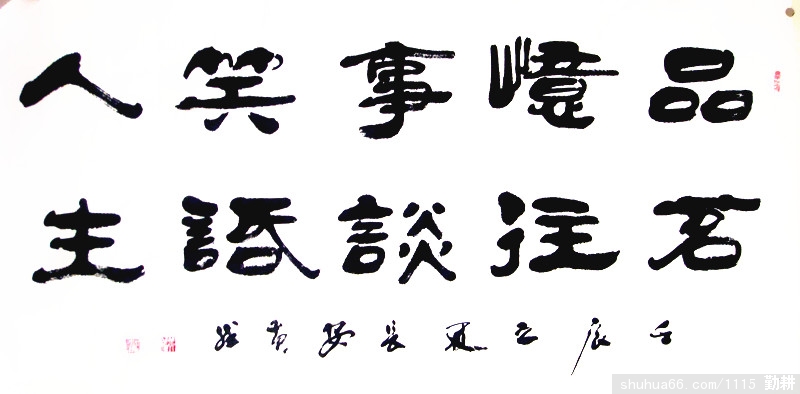 品茗
憶往
事談
笑話
人生
壬辰之夏長安黄
shuhua66.com/1115 勤耕